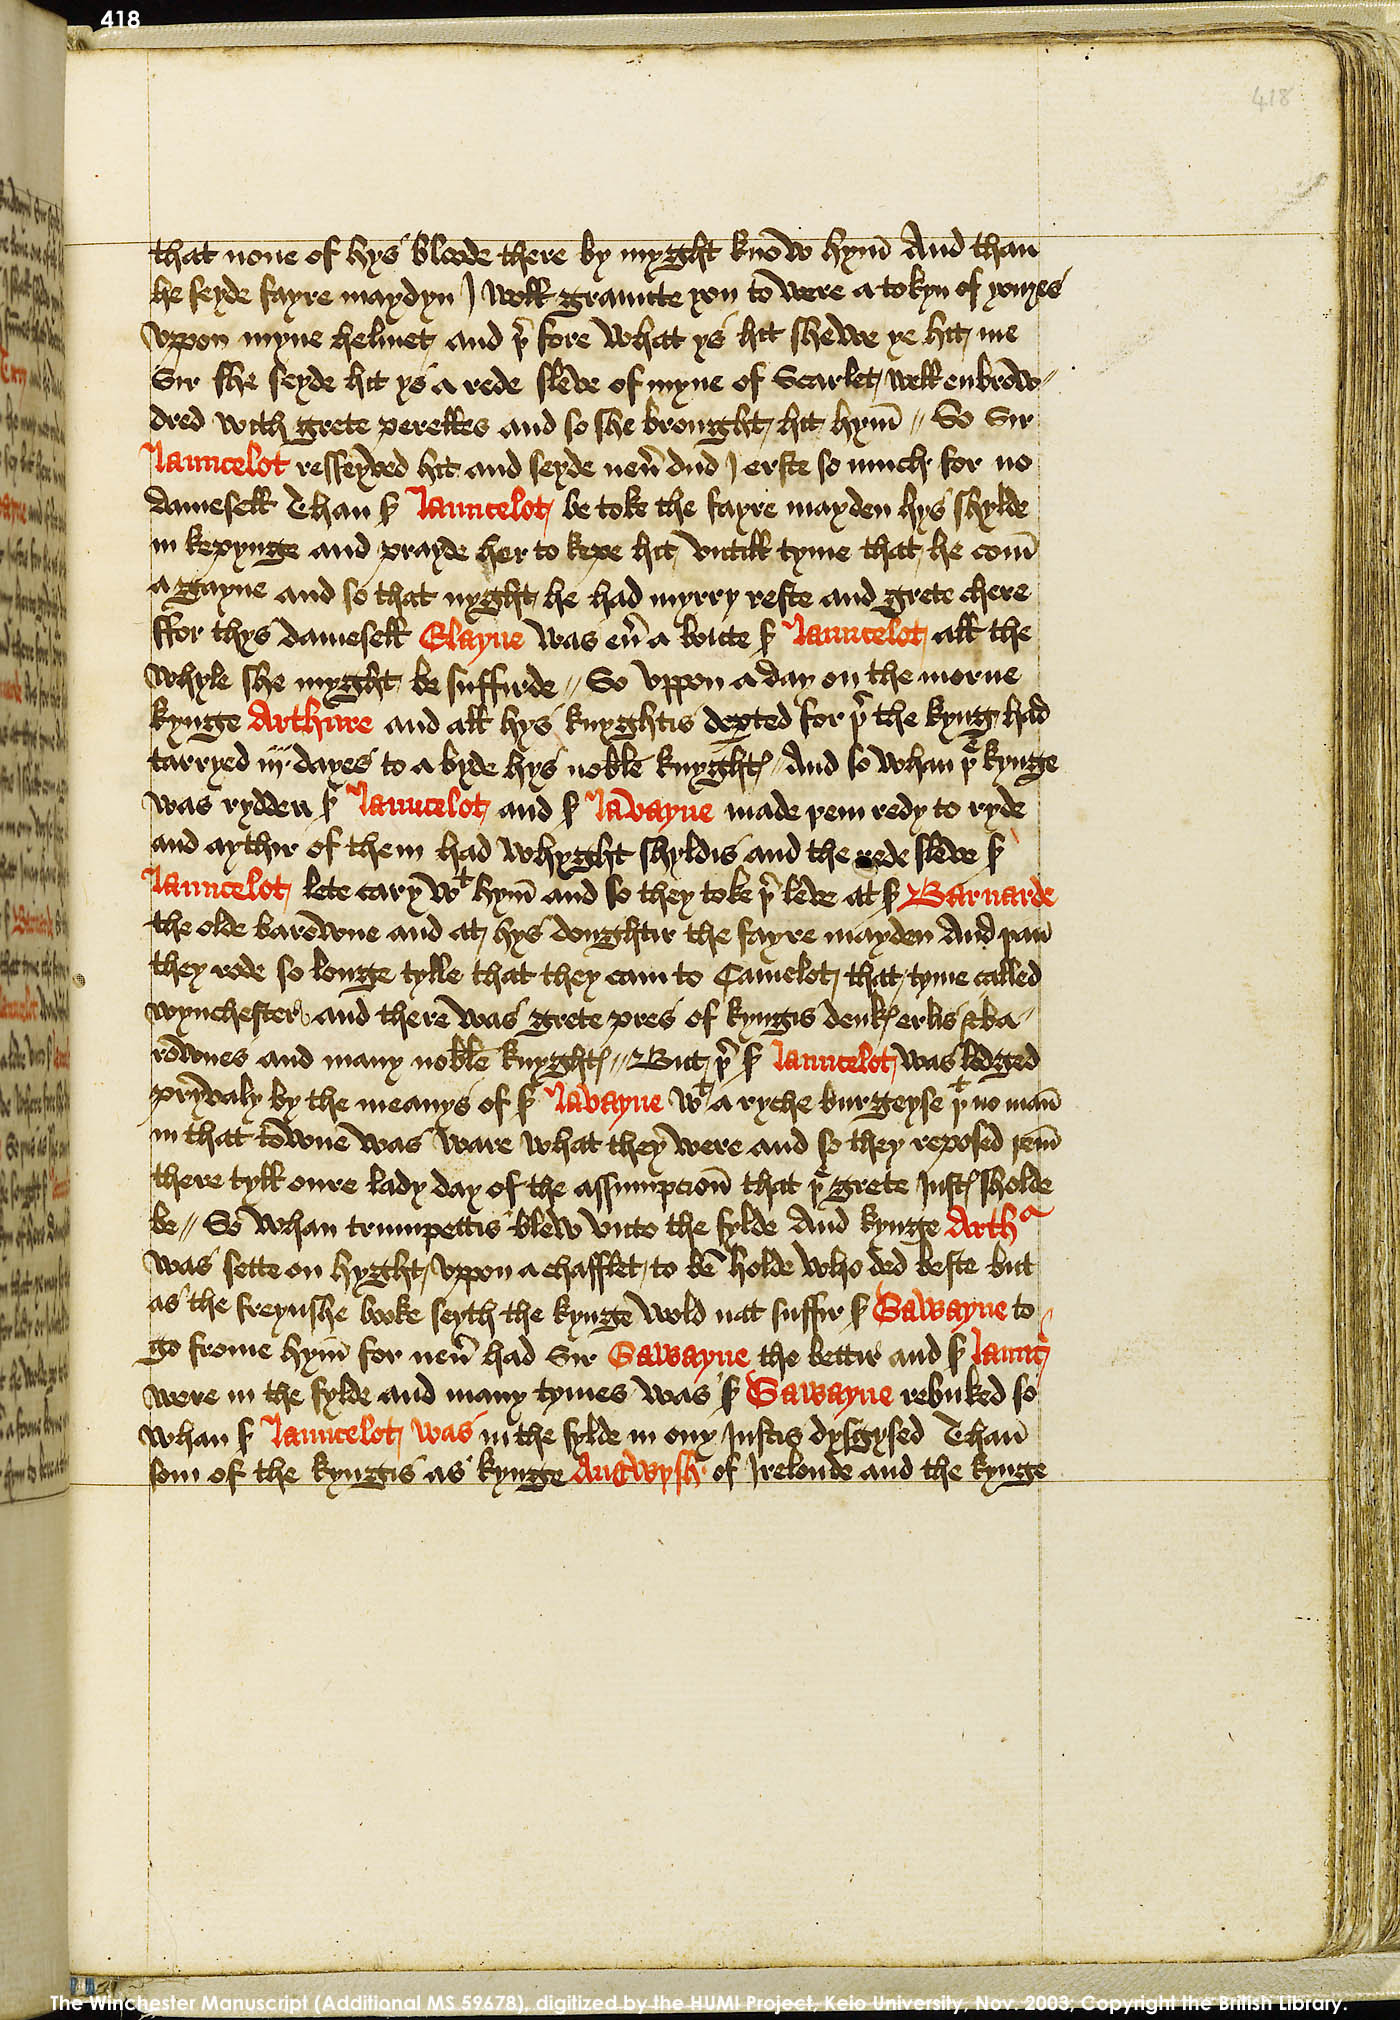 418
418
that none of hys bloode there by myght know hym̄ And than
he seyde fayre maydyn I woll graunte you to were a tokyn of youres
vppon myne helmet and þ̉ fore what ys hit shewe ye hit me
Sir she seyde hit ys a rede sleve of myne of Scarlet well enbrow〃
dred with grete perelles and so she brought hit hym̄ 〃 So Sir
Launcelot resseyved hit and seyde neū dud I erste so much for no
damesell Than sͬ Launcelot be toke the fayre mayden hys shylde
in kepynge and prayde her to kepe hit vntill tyme that he com̄
a gayne and so that nyght he had myrry reste and grete chere
ffor thys damesell Elayne was eū a boute sͬ Launcelot all the
whyle she myght be suffirde 〃 So vppon a day on the morne
kynge Arthure and all hys knyghtis deꝑted for þ̉ the kyng had
tarryed iij dayes to a byde hys noble knyghtꝭ 〃 And so whan þᵉ kynge
was rydden sͬ Launcelot and sͬ Lavayne made þem redy to ryde
and aythir of them had whyght shyldis and the rede sleve sͬ
Launcelot lete cary wᵗ hym̄ and so they toke þ̉ leve at sͬ Barnarde
the olde barowne and at hys doughtir the fayre mayden And þan̄
they rode so longe tylle that they cam to Camelot that tyme called
wynchester and there was grete pres of kyngis deukꝭ erlis & ba〃
rownes and many noble knyghtꝭ 〃 But þ̉ sͬ Launcelot was lodged
pryvaly by the meanys of sͬ Lavayne wᵗ a ryche burgeyse þᵗ no man̄
in that towne was ware what they were and so they reposed þem̄
there tyll oure lady day of the assumpcion̄ that þᵉ grete Justꝭ sholde
be 〃 So whan trumpettis blew vnto the fylde And kynge Arthᵃ
was sette on hyght vppon a chafflet to be holde who ded beste but
as the freynshe booke seyth the kynge wold nat suffir sͬ Gawayne to
go frome hym̄ for neū had Sir Gawayne the bettir and sͬ Launc̉
were in the fylde and many tymes was sͬ Gawayne rebuked so
whan sͬ Launcelot was in the fylde in ony Justis dysgysed Than̄
som of the kyngis as kynge Angwysh of Irelonde and the kynge
The Winchester Manuscript (Additional MS 59678), digitized by the HUMI Project, Keio University, Nov. 2003; Copyright the British Library.